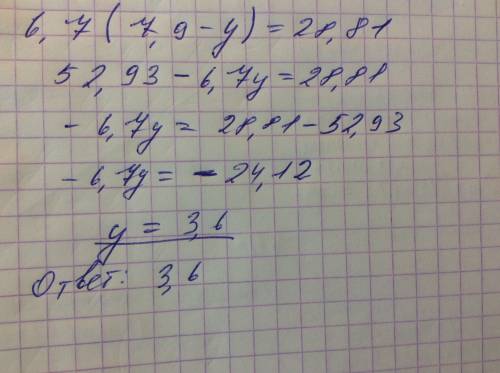 6,7(7,9-y)=28,81
52,93-6,7y=28,81
-6,7y= 28,81-52,93
-6,7y= -24,12
y = 3,6
Ответ: 3,6